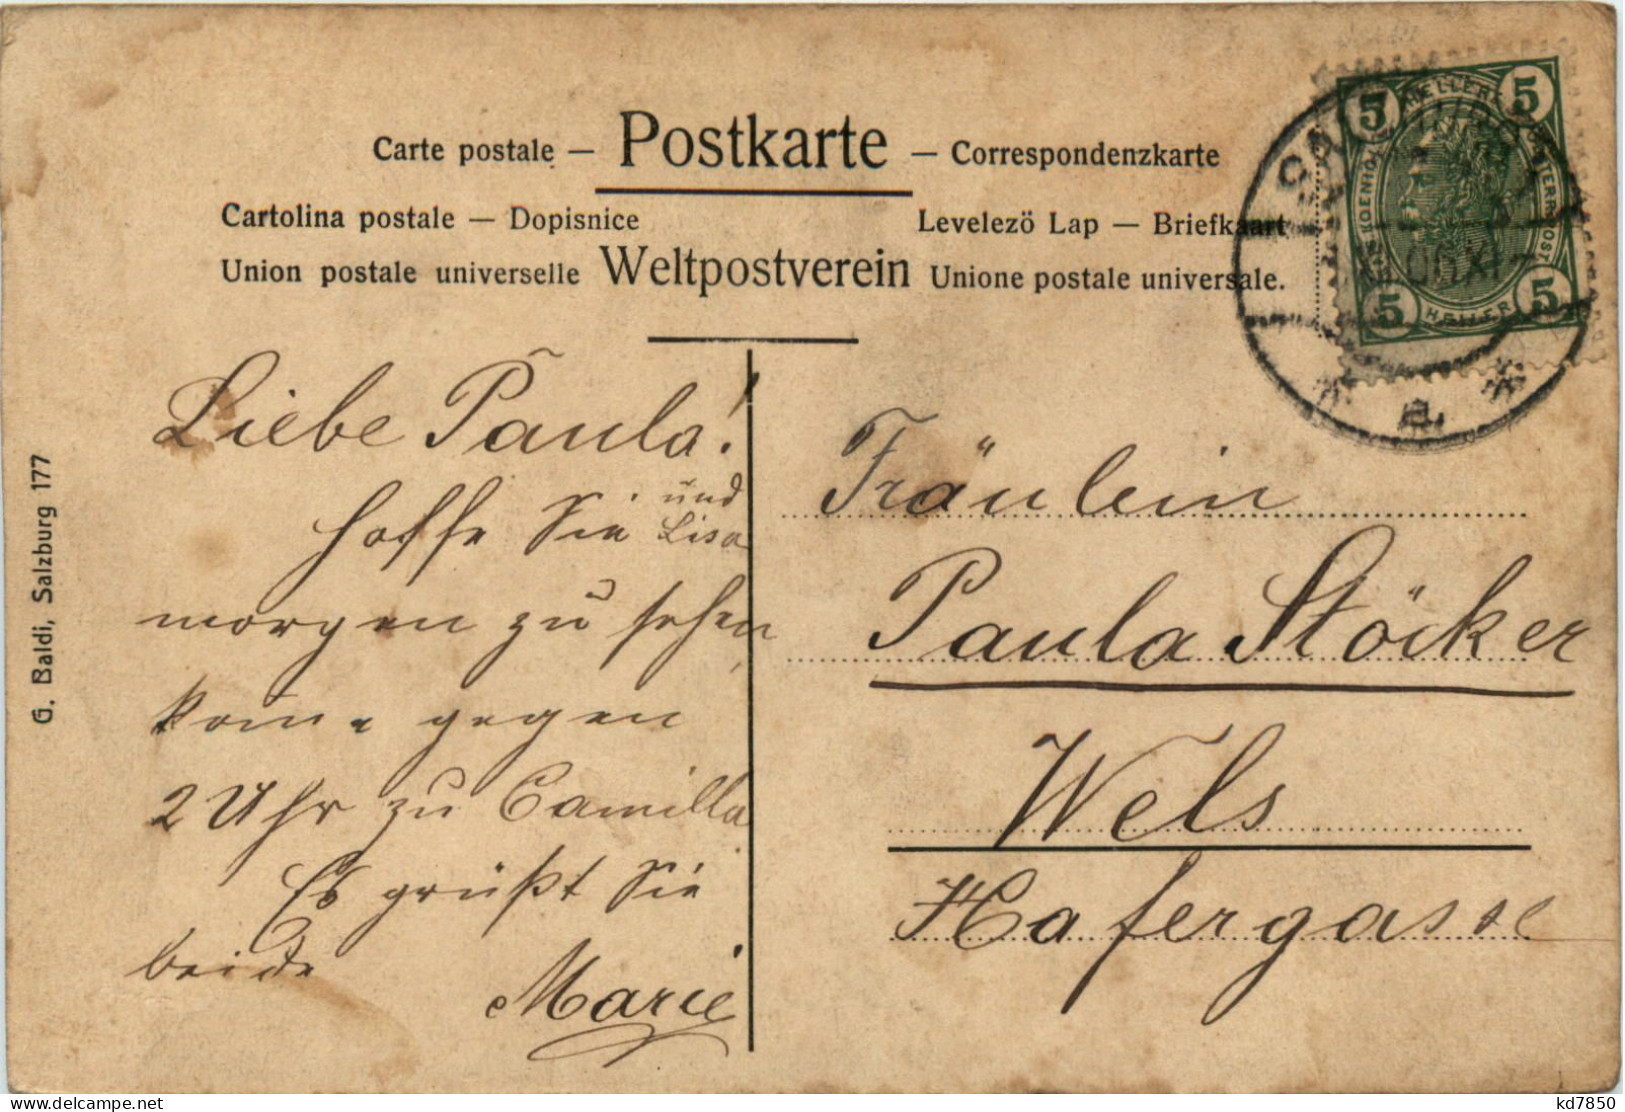 Carte postale — Postkarte — Correspondenzkarte
Cartolina postale — Dopisnice Levelezö Lap — Briefkaart
Union postale universelle Weltpostverein Unione postale universale.
5 HELLER 5
5 HELLER 5
a.
G. Baldi, Salzburg 177
Liebe Paula!
hoffe Sie und Lisa
morgen zu sehen,
kom. gegen
2 Uhr zu Camilla
Es grüßt Sie
beide
Marie
Fräulein
Paula Stöcker
Wels
Hafergasse
delcampe.net
kd7850